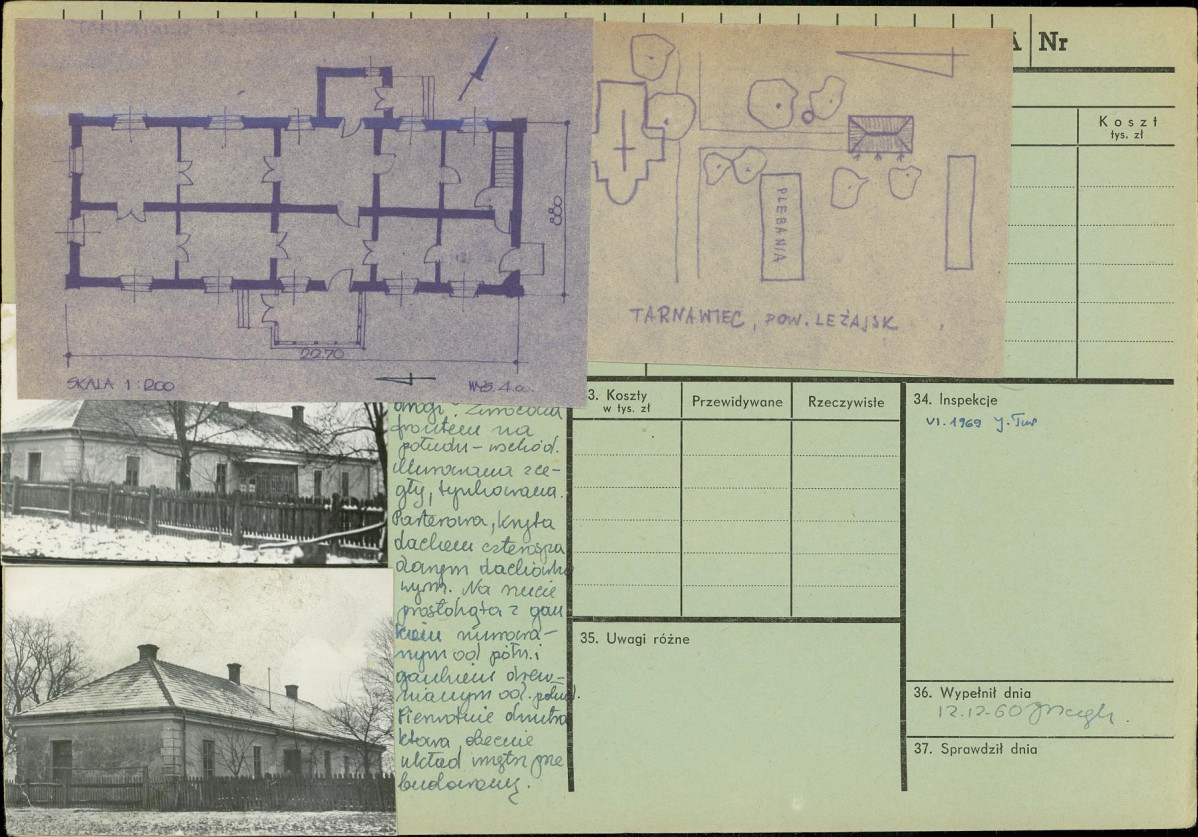 Nr
Koszt
tys. zł
880
2270
SKALA 1:200
WYS. 4.00.
PLEBANIA
TARNAWIEC, POW. LEŻAJSK
drogi. Zwrócona
frontem na
połudn-wschód.
Murowana z ce-
gły, tynkowana.
Parterowa, kryta
dachem czterospa
danym dachówko
wym. Na rzucie
prostokąta z gan
kiem murowa-
nym od półn. i
gankiem drew-
nianym od połud.
Pierwotnie dwutra
ktowa, obecnie
układ wnętrz prze
budowany.
3. Koszty
w tys. zł
Przewidywane
Rzeczywiste
34. Inspekcje
VI. 1969 J. Tur
35. Uwagi różne
36. Wypełnił dnia
12.12.60
37. Sprawdził dnia